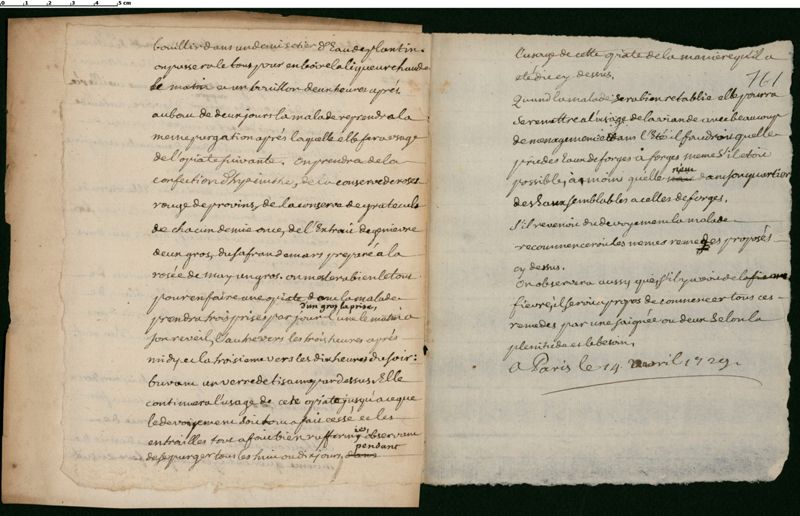 0 1 2 3 4 5 cm
bouillir dans un demi setier d'Eau de plantin.
on passera le tout pour en boire la liqueur chaude
le matin et un bouillon deux heures après
au bou de deux jours la malade reprendra la
meme purgation après laquelle elle fera usage
de l'opiate suivante. On prendra de la
confection d'hyacinthe, de la conserve de roses
rouge de provins, de la conserve de gratecul
de chacun demie once, de l'Extrait de genievre
deux gros, du safran de mars preparé a la
rosée de may un gros. on meslera bien le tout
pour en faire une opiate dont la malade
d'un gros la prise,
prendra trois prises par jour l'une le matin a
son reveil, l'autre vers les trois heures après
midy et la troisieme vers les dix heures du soir
buvant un verre de tisanne par dessus. Elle
continuera l'usage de cete opiate jusqu'a ce que
le devoyement soit tout a fait cessé et les
entrailles tout a fait bien raffermies observant
pendant
de se purger tous les huit ou dix jours,
l'usage de cette opiate de la maniere qu'il a
eté dit cy dessus.
761
Quand la malade sera bien retablie elle pourra
se remettre a l'usage de la viande avec beaucoup
de menagement et dans l'Eté il faudroit quelle
prit des Eaux de forges à forges meme s'il etoit
rien
possible, à moins quelle dans son quartier
des Eaux semblables a celles de forges.
S'il revenoit du devoyement la malade
recommenceroit les memes remedes proposés
cy dessus.
On observera aussy que s'il y avoit de la
fievre il seroit a propos de commencer tous ces
remedes par une saignée ou deux selon la
plenitude et le besoin.
A Paris le 14 avril 1729.